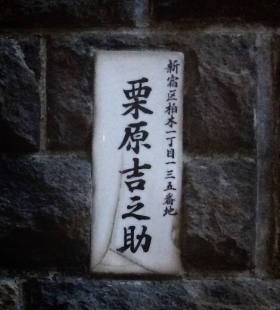 新宿区柏木一丁目一三五番地
栗原吉之助